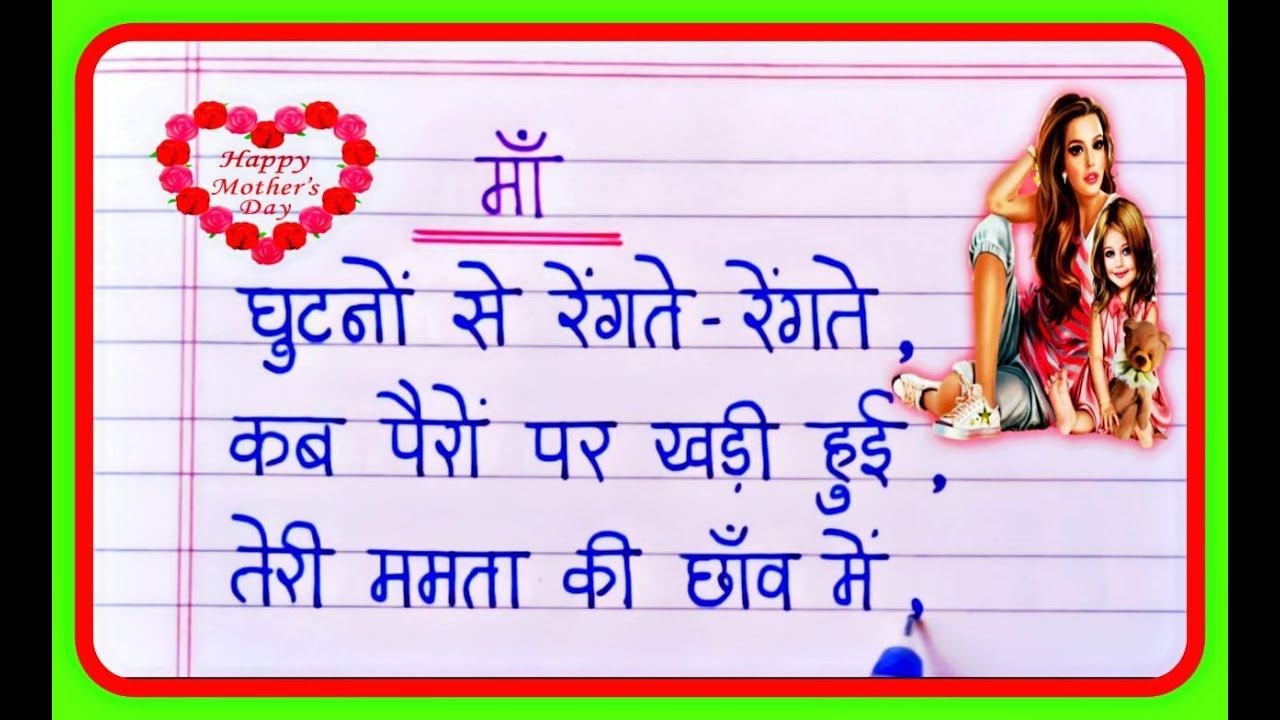 Happy
Mother's
Day
माँ
घुटनों से रेंगते-रेंगते,
कब पैरों पर खड़ी हुई,
तेरी ममता की छाँव में,